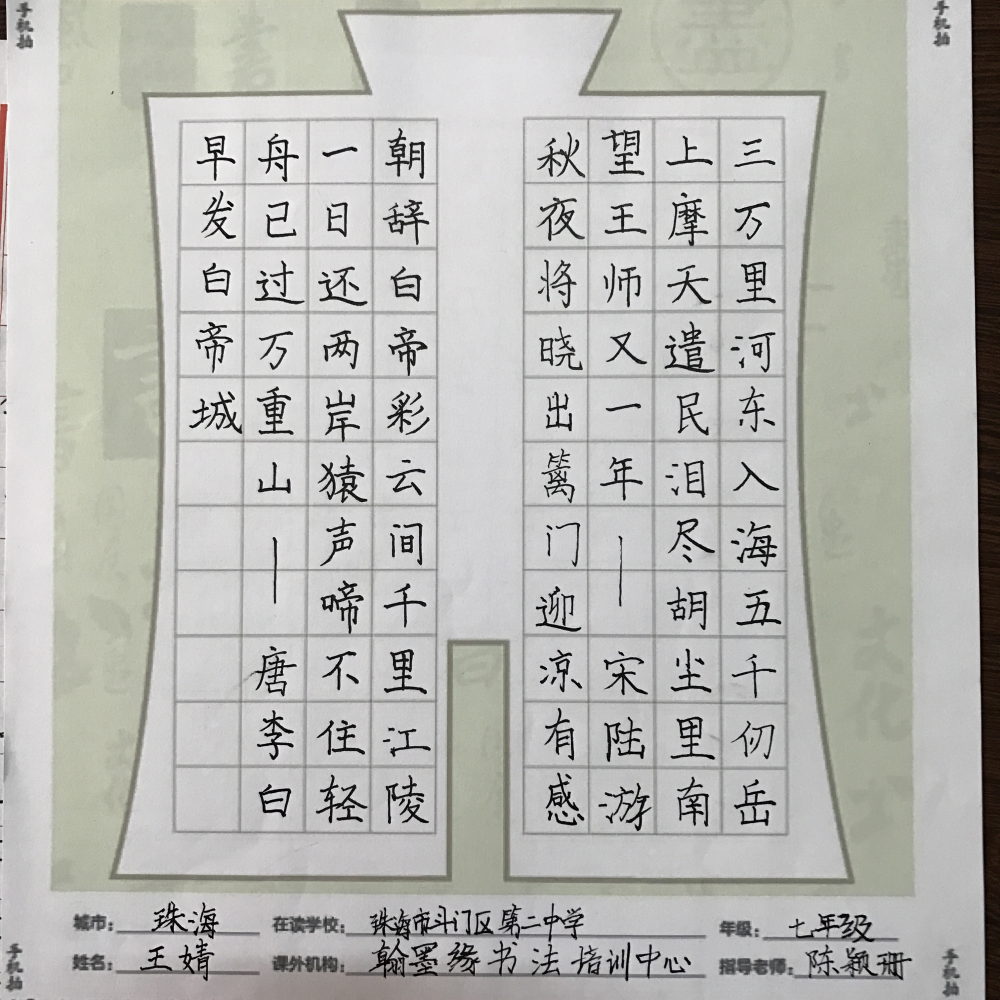 手机拍
手机拍
三万里河东入海五千仞岳
上摩天遣民泪尽胡尘里南
望王师又一年——宋陆游
秋夜将晓出篱门迎凉有感
朝辞白帝彩云间千里江陵
一日还两岸猿声啼不住轻
舟已过万重山——唐李白
早发白帝城
城市：珠海 在读学校：珠海市斗门区第二中学 年级：七年级
姓名：王婧 课外机构：翰墨缘书法培训中心 指导老师：陈颖珊
手机拍
手机拍